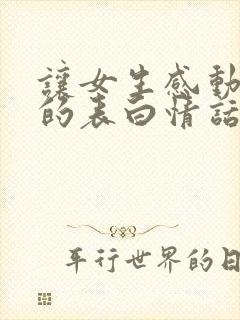 讓女生感動
的表白情話
平行世界的日